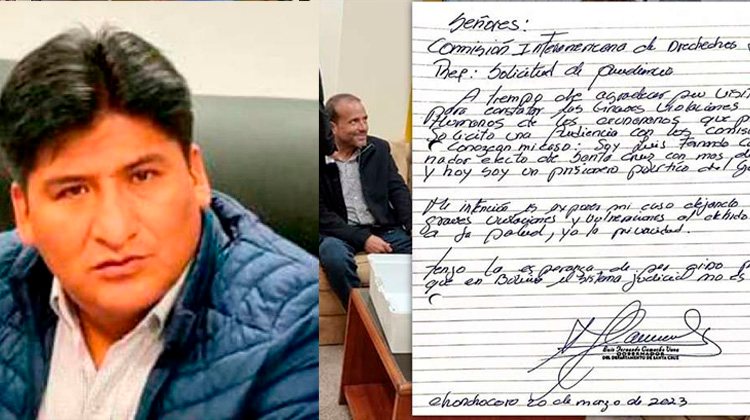 Señores:
Comisión Interamericana de Derechos
Ref: Solicitud de Audiencia
A tiempo de agradecer su visit
para constatar las graves violaciones
Humanos de los
solicito una Audiencia con los comis
conozcan mi caso: Soy Luis Fernando Ca
nador electo de Santa Cruz con mas de
y hoy soy un prisionero politico del G
Mi intención es exponer mi caso dejando
graves violaciones y al debido
a la salud, y a la privacidad.
Tengo la esperanza de
que en Bolivia el sistema judicial no es
Luis Fernando Camacho Vaca
GOBERNADOR
DEL DEPARTAMENTO DE SANTA CRUZ
Chonchocoro 20 de marzo de 2023